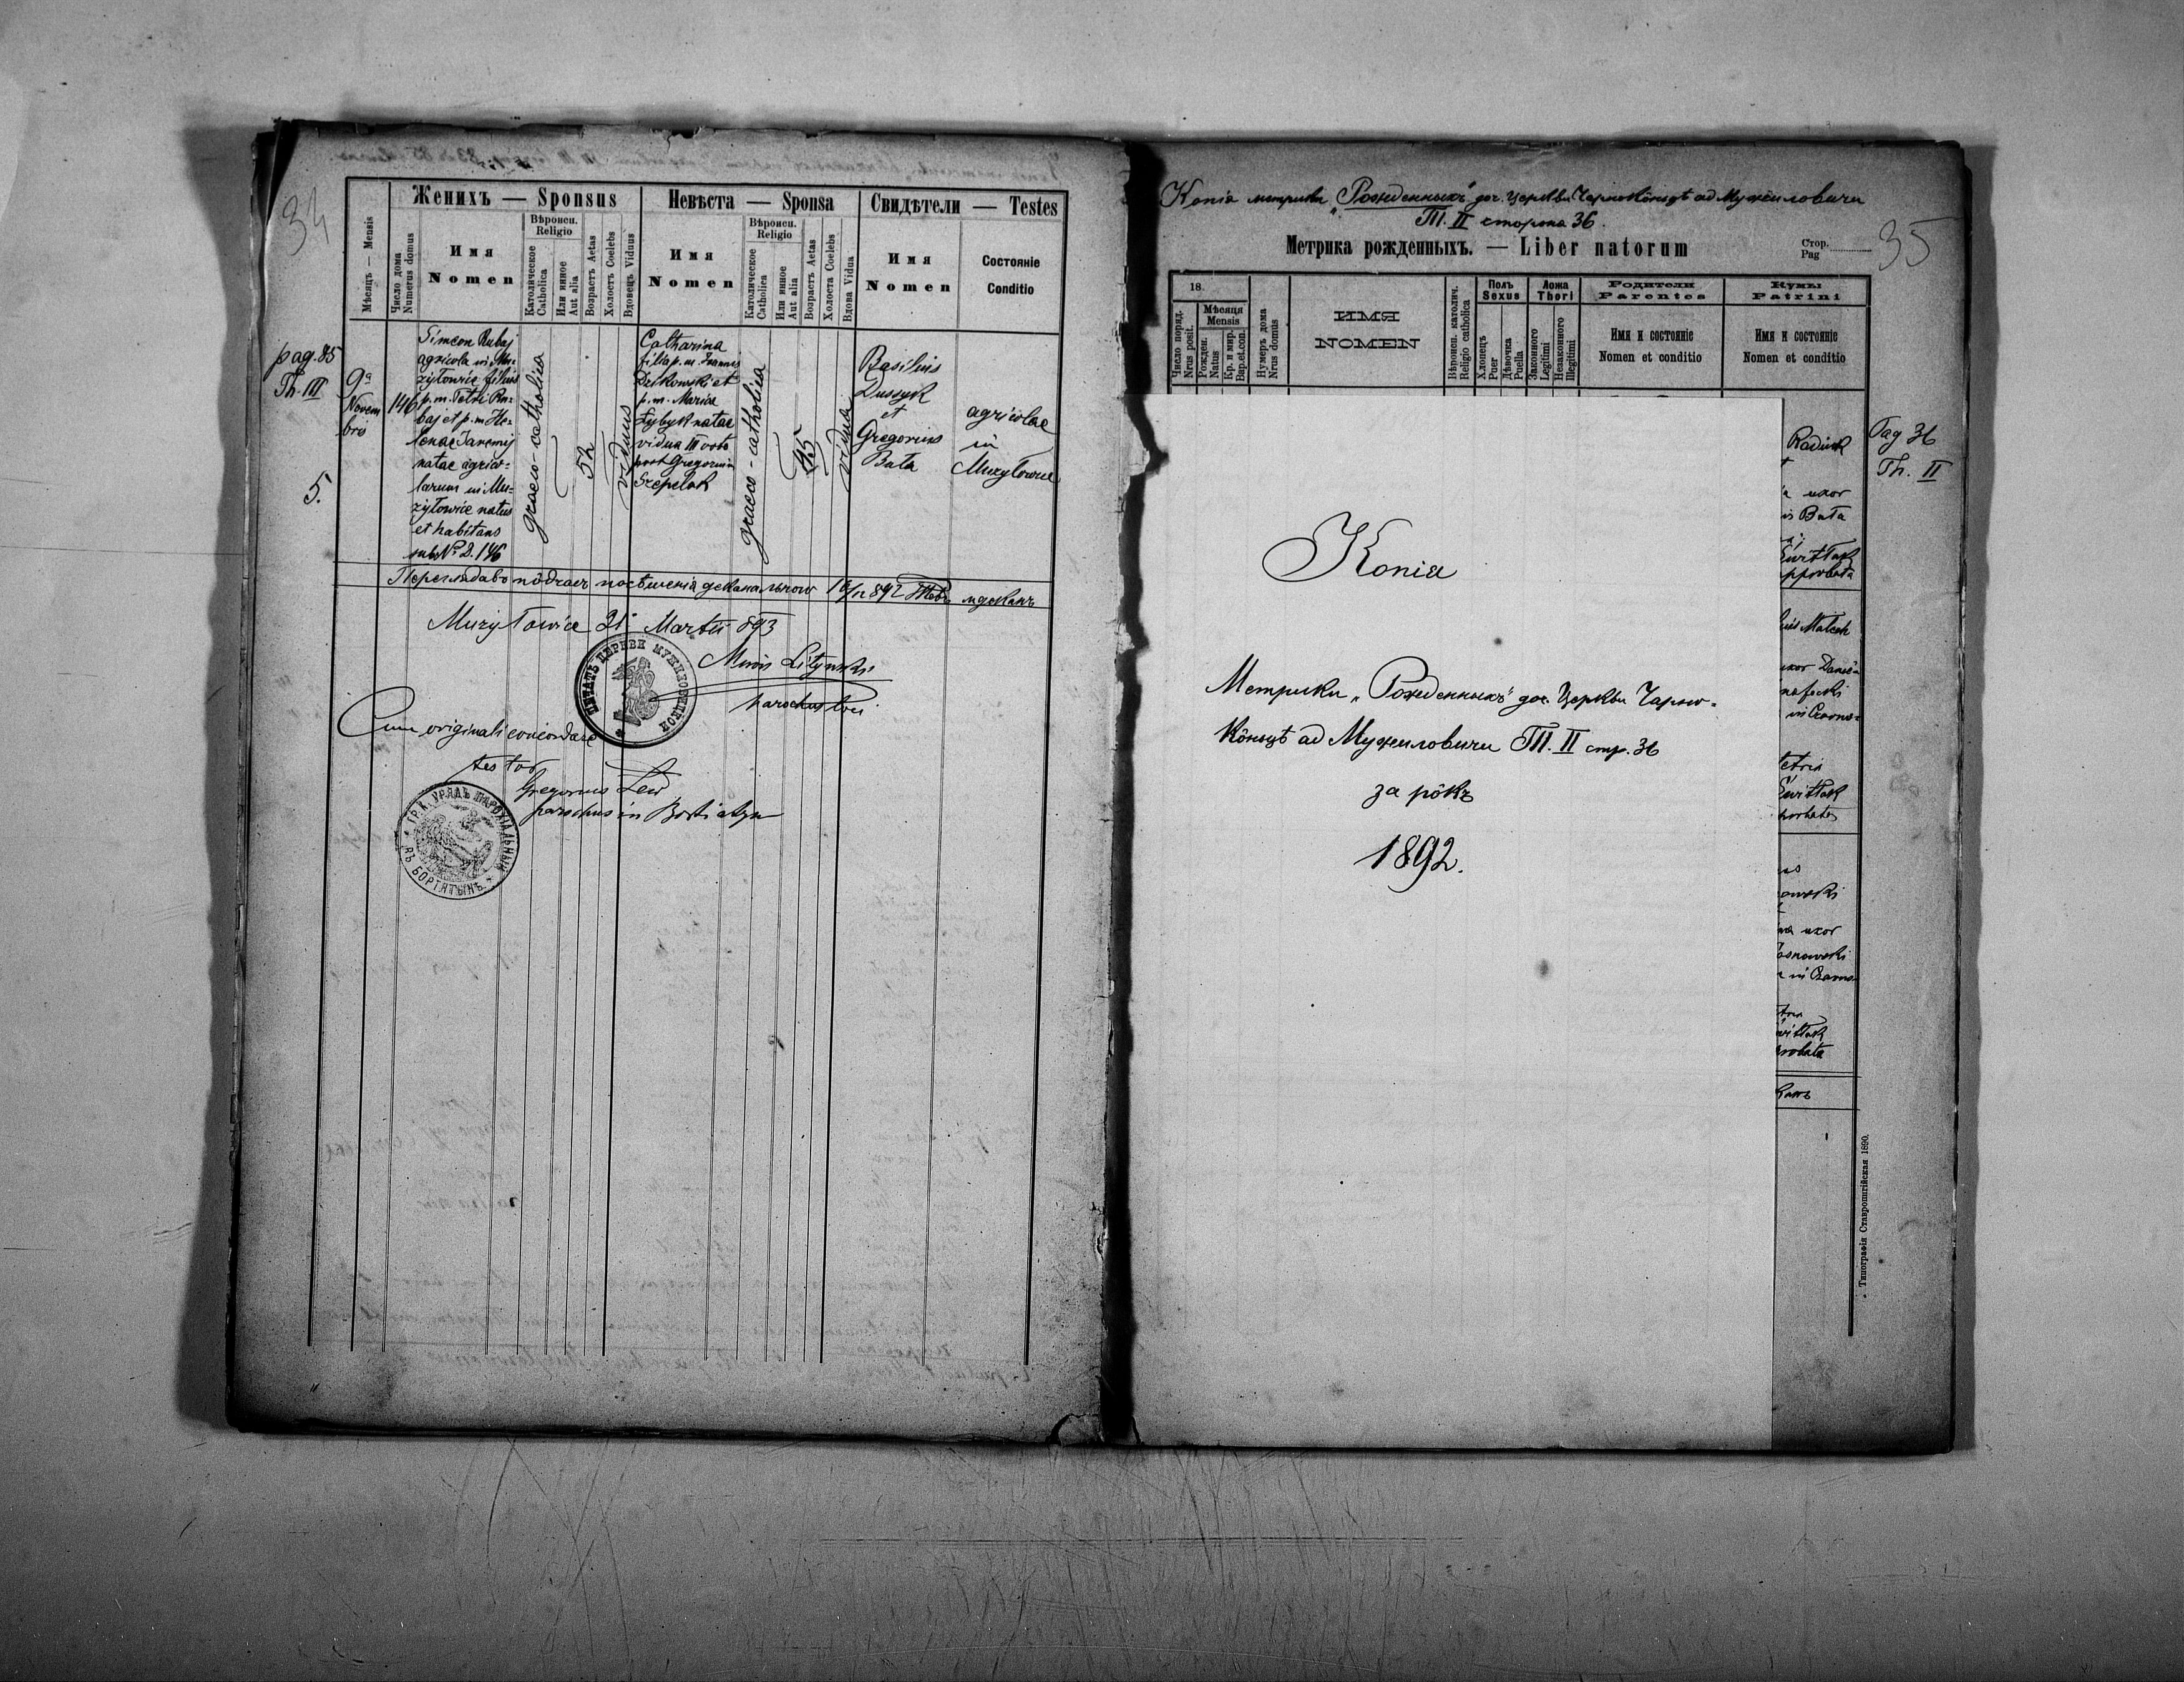 34
Женихъ — Sponsus
Невѣста — Sponsa
Свидѣтели — Testes
Мѣсяцъ — Mensis
Число дома
Numerus domus
Имя
Nomen
Вѣроисп.
Religio
Католическое
Catholica
Или инное
Aut alia
Возрастъ Aetas
Холостъ Coelebs
Вдовецъ Viduus
Имя
Nomen
Вѣроисп.
Religio
Католическое
Catholica
Или инное
Aut alia
Возрастъ Aetas
Холоста Coelebs
Вдова Vidua
Имя
Nomen
Состояніе
Conditio
pag. 85
Th. III
5.
9a
Novem
bris
146
Simeon Rubaj
agricola in Mu-
żyłowice filius
p. m. Petri Ru-
baj et p. m. He-
lenae Jaremij
natae agrico-
larum in Mu-
żyłowice natus
et habitans
sub № D. 146
graeco-catholica
52
viduus
Catharina
filia p. m. Joannis
et
p. m. Maria
natae
vidua III voto
post Gregorium
Szepelak
graeco-catholica
45
vidua
Basilius
Dussyk
et
Gregorius
Bata
agricolae
in
Mużyłowice
Переглядавъ пôдчасъ посѣщенія деканального 16/12 892
Mużyłowice 21 Martii 893
Litynski
parochus loci
ПЕЧАТЬ ЦЕРКВИ МУЖИЛОВИЦКОЙ
Cum originali concordare
testor
Gregorius Lew
parochus in Bortiatyn
ГР. К. УРЯДЪ ПАРОХІАЛЬНЫЙ ВЪ БОРТЯТЫНѢ
Копія метрики „Рожденныхъ" доч. Церкви Чарнокôньцѣ ад Мужиловичи
Т. II сторона 36.
Метрика рожденныхъ. — Liber natorum
Стор.
Pag
35
18
Число поряд.
Nrus posit.
Мѣсяця
Mensis
Рожден.
Natus
Кр. и мир.
Bap. et con.
Нумеръ дома
Nrus domus
ИМЯ
NOMEN
Вѣроисп. католич.
Religio catholica
Полъ
Sexus
Хлопецъ
Puer
Дѣвочка
Puella
Ложа
Thori
Законного
Legitimi
Незаконного
Illegitimi
Родители
Parentes
Имя и состояніе
Nomen et conditio
Кумы
Patrini
Имя и состояніе
Nomen et conditio
Pag 36
Th. II
Копія
Метрики „Рожденныхъ" доч. Церкви Чарно-
кôньцѣ ад Мужиловичи Т. II стр. 36
за рôкъ
1892.
uxor
Bata
Matech
uxor
uxor
Типографія Ставропигійская 1890.